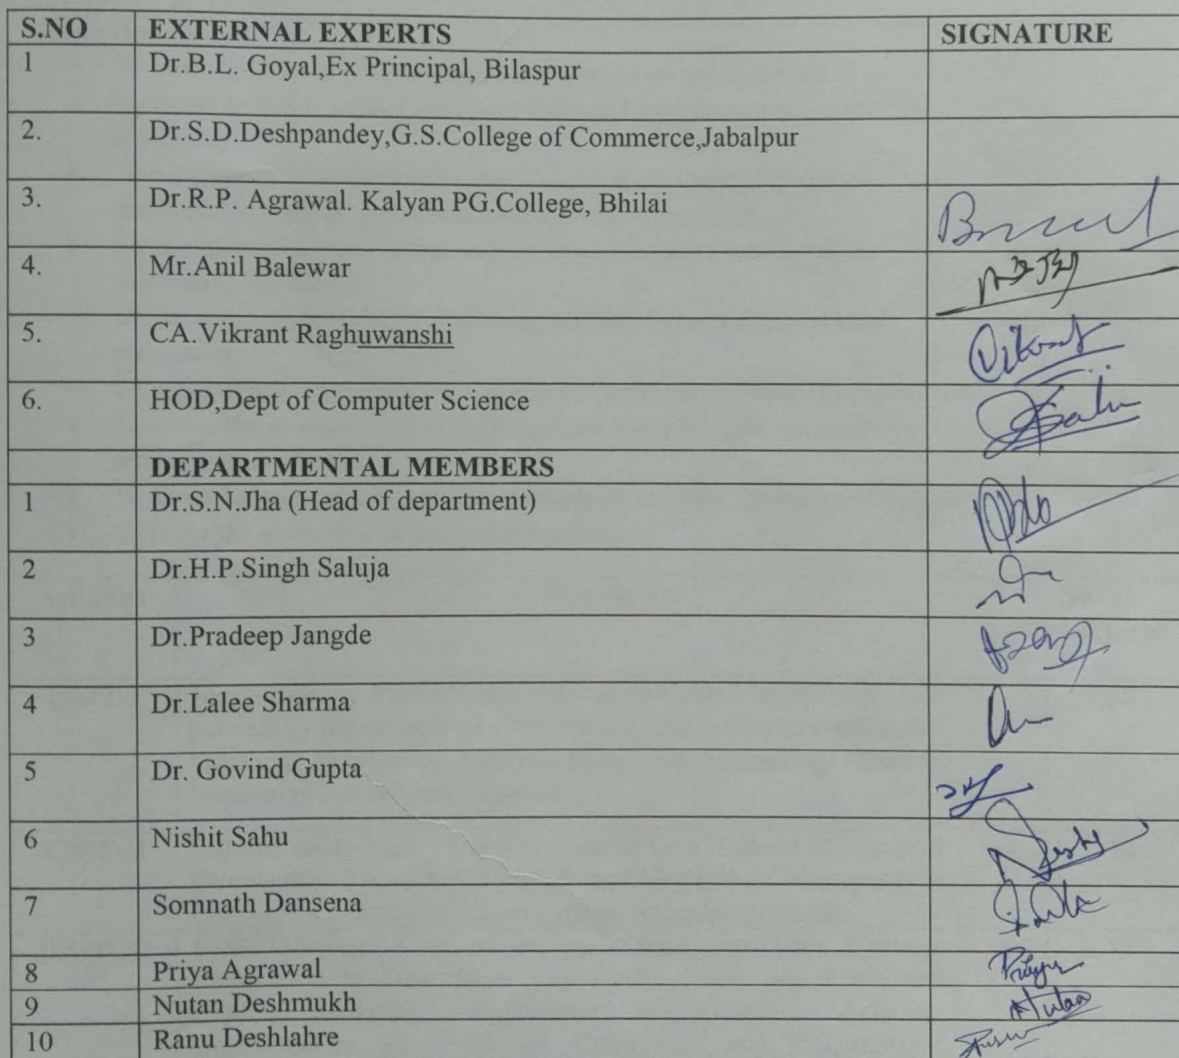 S.NO EXTERNAL EXPERTS SIGNATURE
1 Dr.B.L. Goyal,Ex Principal, Bilaspur
2. Dr.S.D.Deshpandey,G.S.College of Commerce,Jabalpur
3. Dr.R.P. Agrawal. Kalyan PG.College, Bhilai
4. Mr.Anil Balewar
5. CA.Vikrant Raghuwanshi
6. HOD,Dept of Computer Science
DEPARTMENTAL MEMBERS
1 Dr.S.N.Jha (Head of department)
2 Dr.H.P.Singh Saluja
3 Dr.Pradeep Jangde
4 Dr.Lalee Sharma
5 Dr. Govind Gupta
6 Nishit Sahu
7 Somnath Dansena
8 Priya Agrawal
9 Nutan Deshmukh
10 Ranu Deshlahre